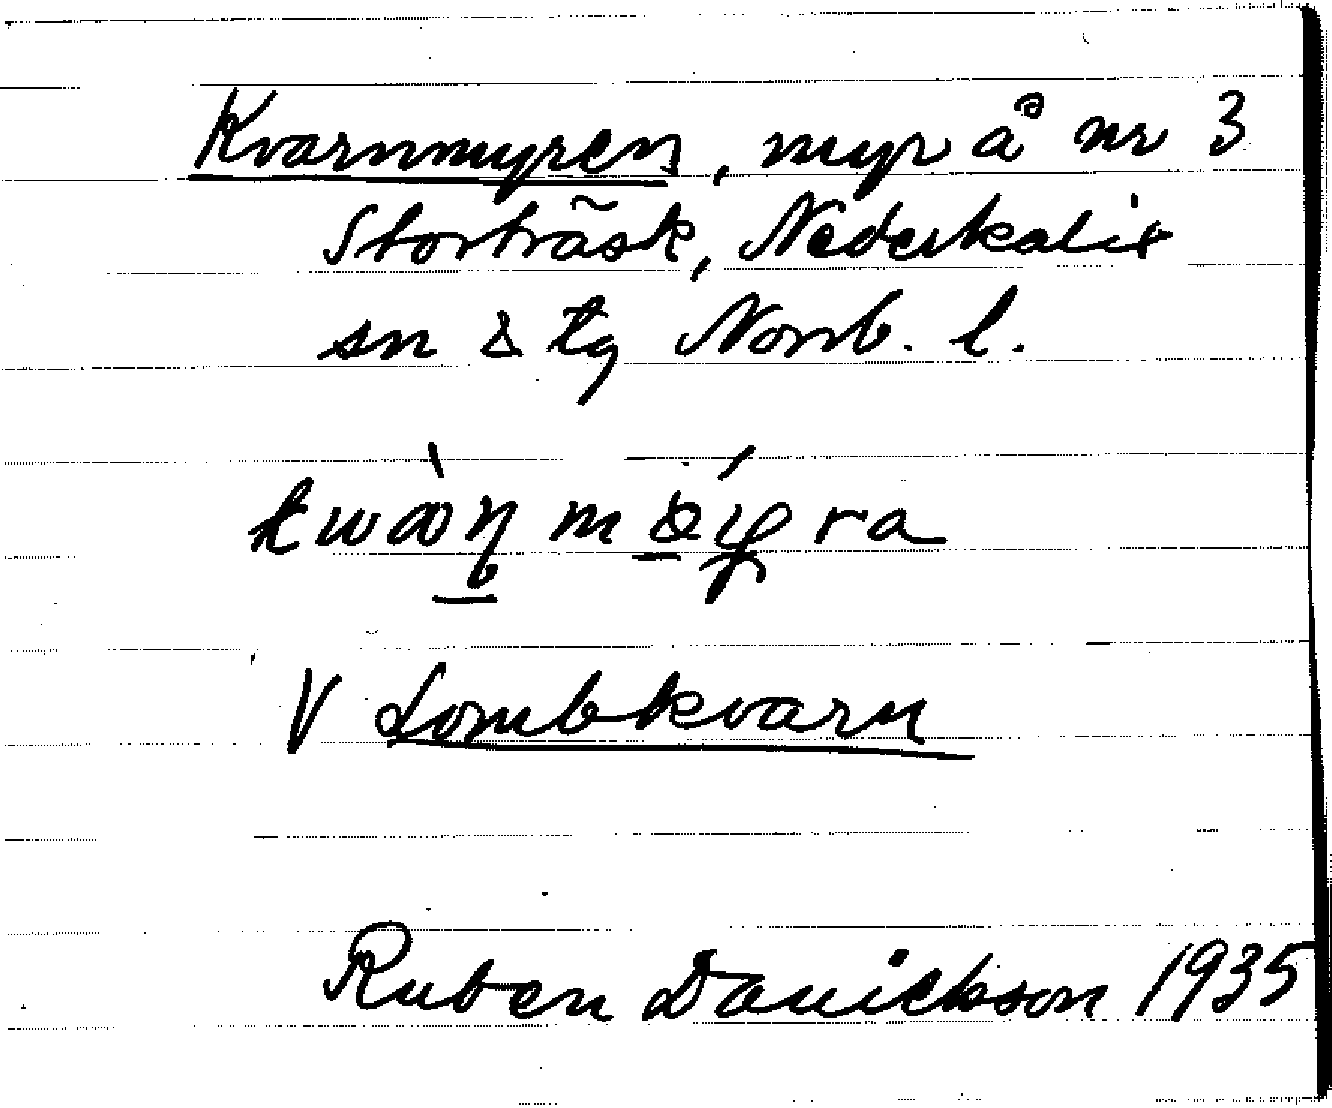 Kvarnmyren, myr å nr 3
Storträsk, Nederkalix
sn & tg Norrb. l.
V Lombkvarn
Ruben Danielsson 1935